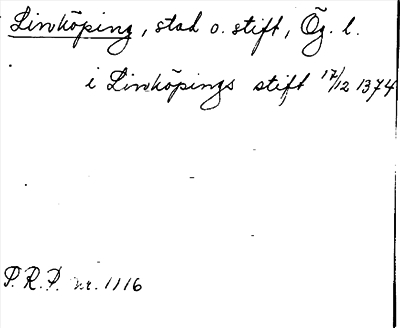 Linköping, stad o. stift, Ög. l.
i Linköpings stift 17/12 1374
P.R.P. nr. 1116